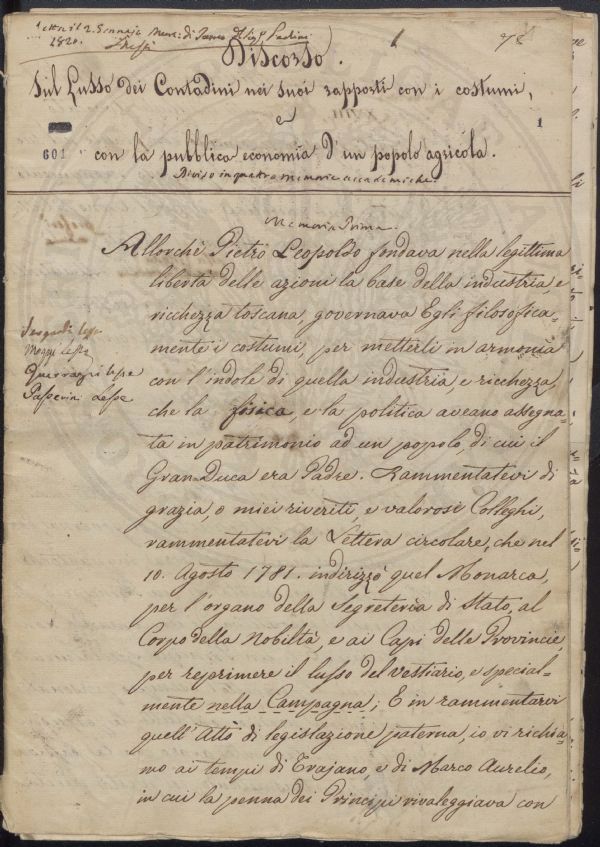 Letto il 2. Gennajo
1820.
1
Discorso.
Sul Lusso dei Contadini nei suoi rapporti con i costumi,
e
1
601
con la pubblica economia d'un popolo agricola.
Diviso in quattro memorie accademiche.
Memoria Prima.
Allorchè Pietro Leopoldo fondava nella legittima
libertà delle azioni la base della industria, e
ricchezza toscana, governava Egli filosofica-
mente i costumi, per metterli in armonia
con l'indole di quella industria, e ricchezza,
che la fisica, e la politica aveano assegna-
ta in patrimonio ad un popolo, di cui il
Gran-Duca era Padre. Rammentatevi di
grazia, o miei riveriti, e valorosi Colleghi,
rammentatevi la Lettera circolare, che nel
10. Agosto 1781. indirizzò quel Monarca,
per l'organo della Segreteria di Stato, al
Corpo della Nobiltà, e ai Capi delle Provincie,
per reprimere il lusso del vestiario, e special-
mente nella Campagna; E in rammentarvi
quell'Atto di legislazione paterna, io vi richia-
mo ai tempi di Trajano, e di Marco Aurelio,
in cui la penna dei Principi rivaleggiava con